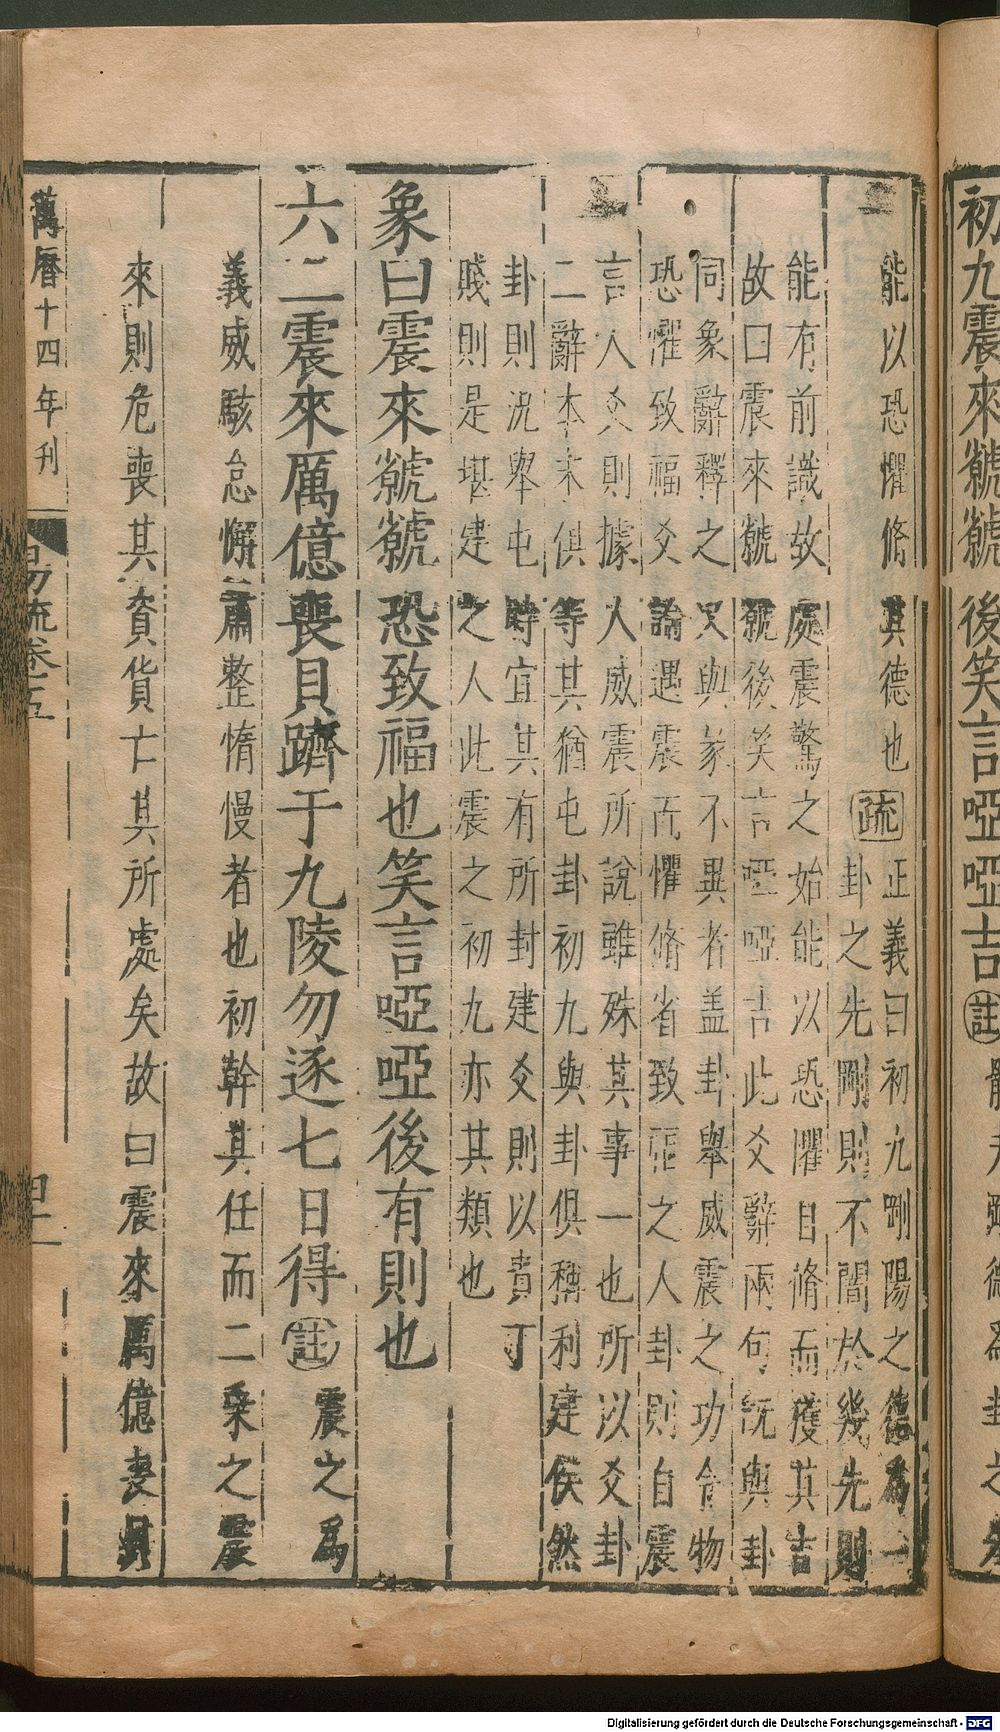 初九震來虩虩後笑言啞啞吉註
能以恐懼脩其德也疏正義曰初九剛陽之德爲一
卦之先剛則不闇於幾先則
能有前識故處震驚之始能以恐懼自脩而獲其吉
故曰震來虩虩後笑言啞啞吉此爻辭兩句旣與卦
同象辭釋之又與彖不異者蓋卦舉威震之功令物
恐懼致福爻論遇震而懼脩省致福之人卦則自震
言人爻則據人威震所說雖殊其事一也所以爻卦
二辭本末俱等其猶屯卦初九與卦俱稱利建侯然
卦則況舉屯時宜其有所封建爻則以貴下
賤則是堪建之人此震之初九亦其類也
象曰震來虩虩恐致福也笑言啞啞後有則也
六二震來厲億喪貝躋于九陵勿逐七日得註震之爲
義威駭怠懈肅整惰慢者也初幹其任而二乘之震
來則危喪其資貨亡其所處矣故曰震來厲億喪貝
萬曆十四年刊
易疏卷五